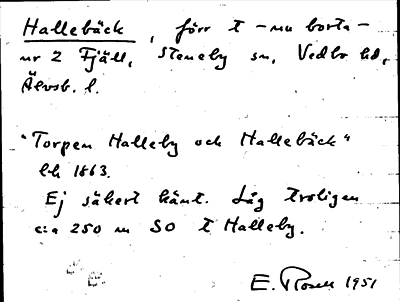 Hallebäck, förr t – nu borta –
nr 2 Fjäll, Steneby sn, Vedbo hd,
Älvsb. l.
"Torpen Halleby och Hallebäck"
lh 1863.
Ej säkert känt. Låg troligen
c:a 250 m SO t Halleby.
E. Rosell 1951